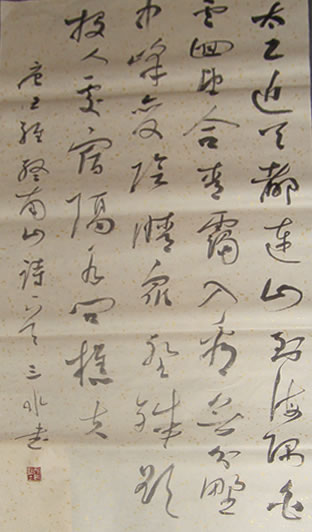 太乙近天都連山到海隅白
雲迴望合青靄入看無分野
中峰變陰晴眾壑殊欲
投人處宿隔水問樵夫
唐王維終南山詩一首 三水書